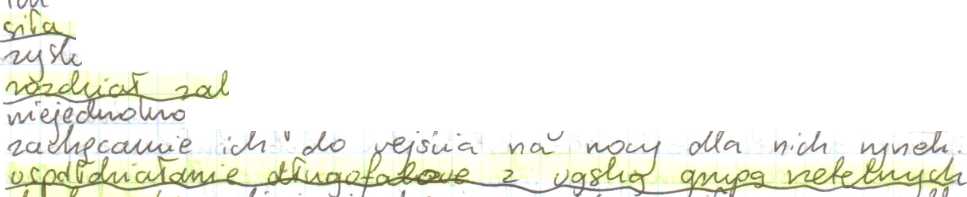 siła
zysk
rozdział zad
niejedno
zachęcanie ich do wejścia na nowy dla nich rynek.
współdziałanie długofalowe z wąską grupą rzetelnych